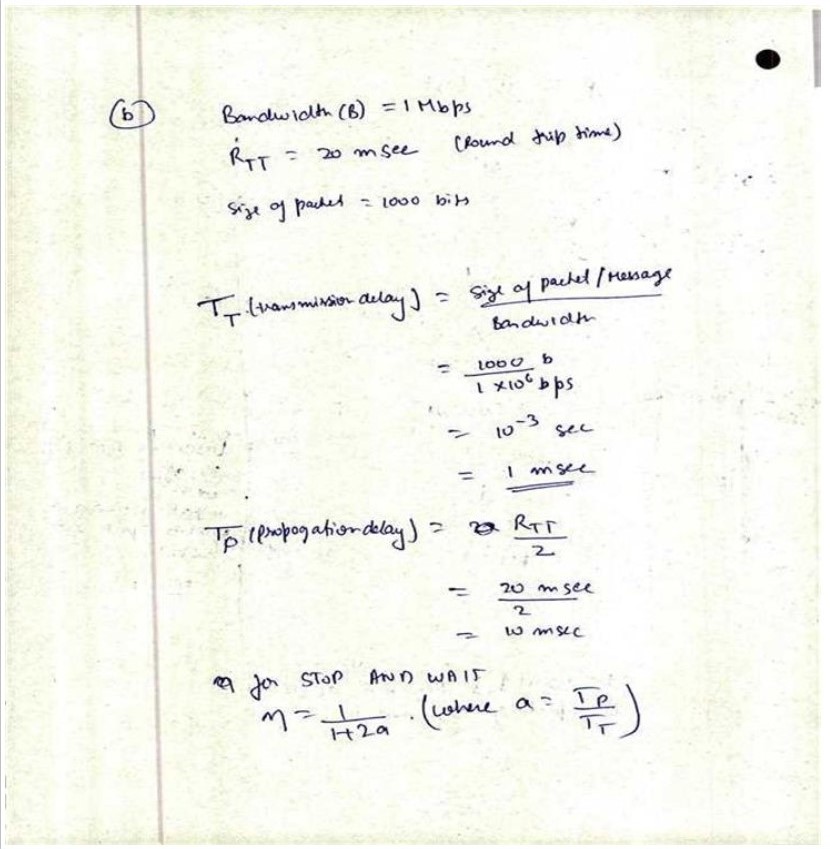 (b) Bandwidth (B) = 1 Mbps
RTT = 20 msec (Round trip time)
Size of packet = 1000 bits
TT (transmission delay) = Size of packet / Message
Bandwidth
= 1000 b
1 × 10⁶ bps
= 10⁻³ sec
= 1 msec
TP (propogation delay) = RTT
2
= 20 msec
2
= 10 msec
for STOP AND WAIT
η = 1/1+2a . (where a = TP/TT)